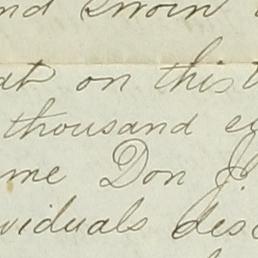 nd Sworn
at on this
thousand e
me Don J.
viduals des